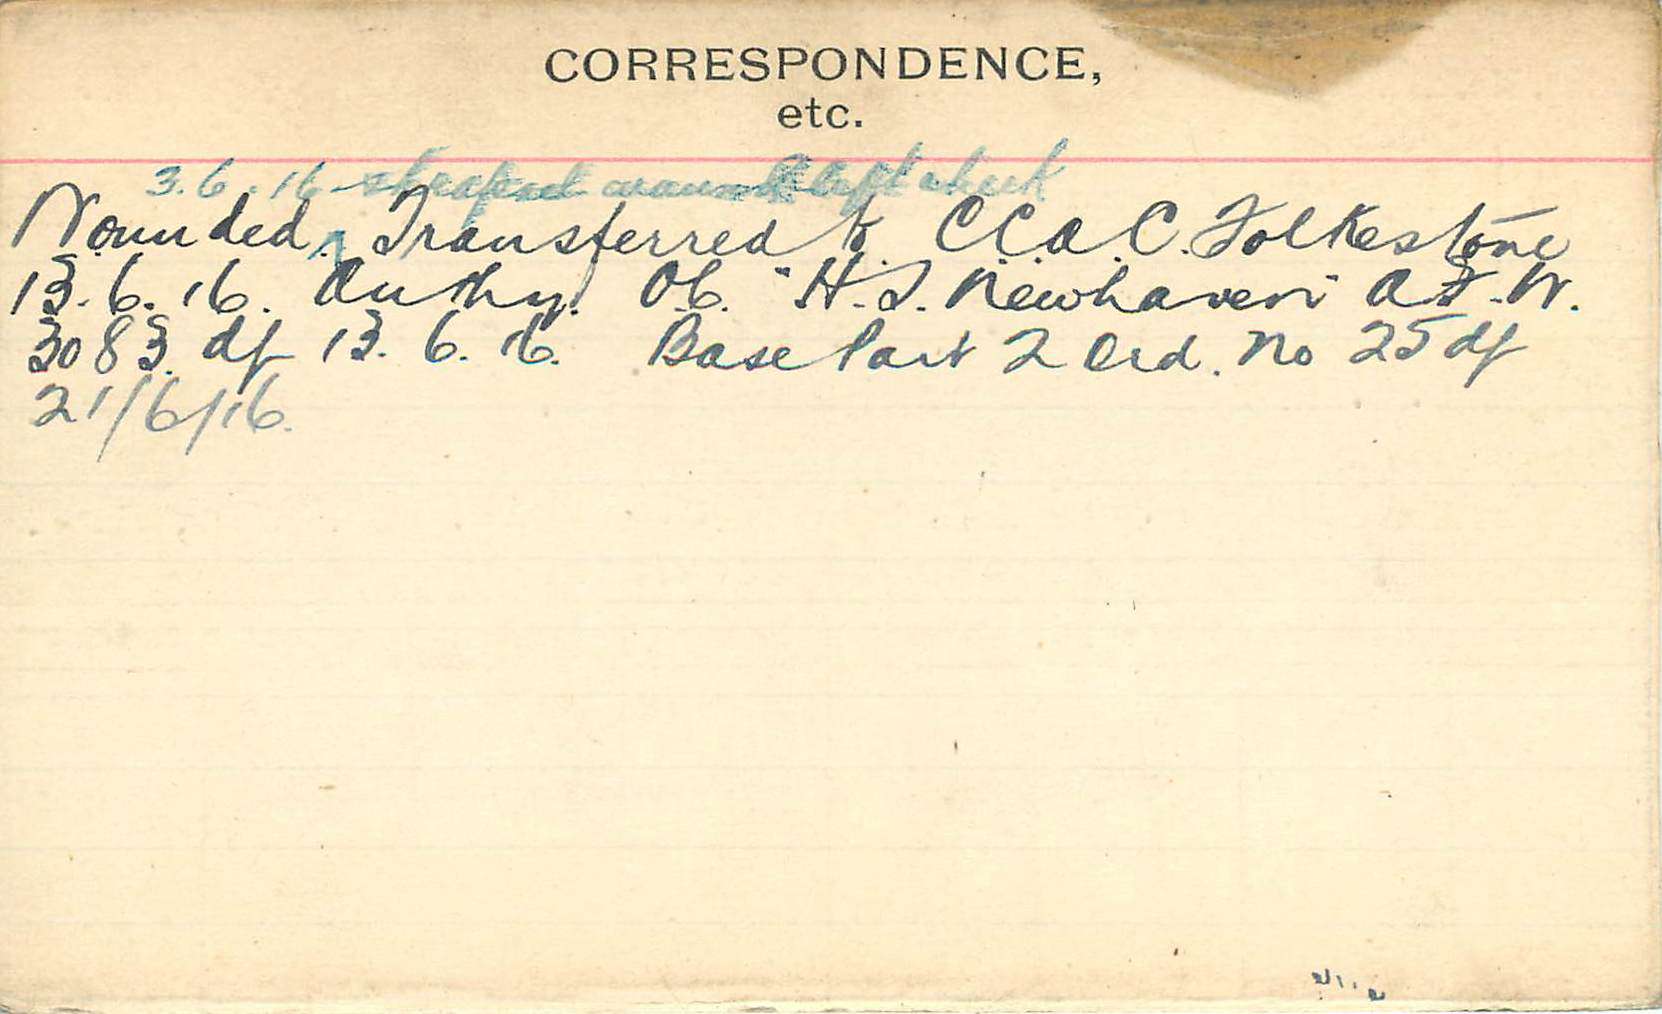 CORRESPONDENCE,
etc.
3.6.16 shrapnel wound left cheek
Wounded, Transferred to C.C.A.C. Folkestone
13.6.16. Authy. O.C. "H.S. Newhaven" A.F.W.
3083. df 13.6.16. Base Part 2 Ord. No 25 df
21/6/16.